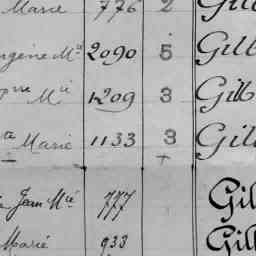 Marie 776 2 Gil
Mie 2090 5 Gilb
Mie 1209 3 Gilb
Marie 1133 3 Gil
Jean Mie 777 Gil
Marie 933 Gill